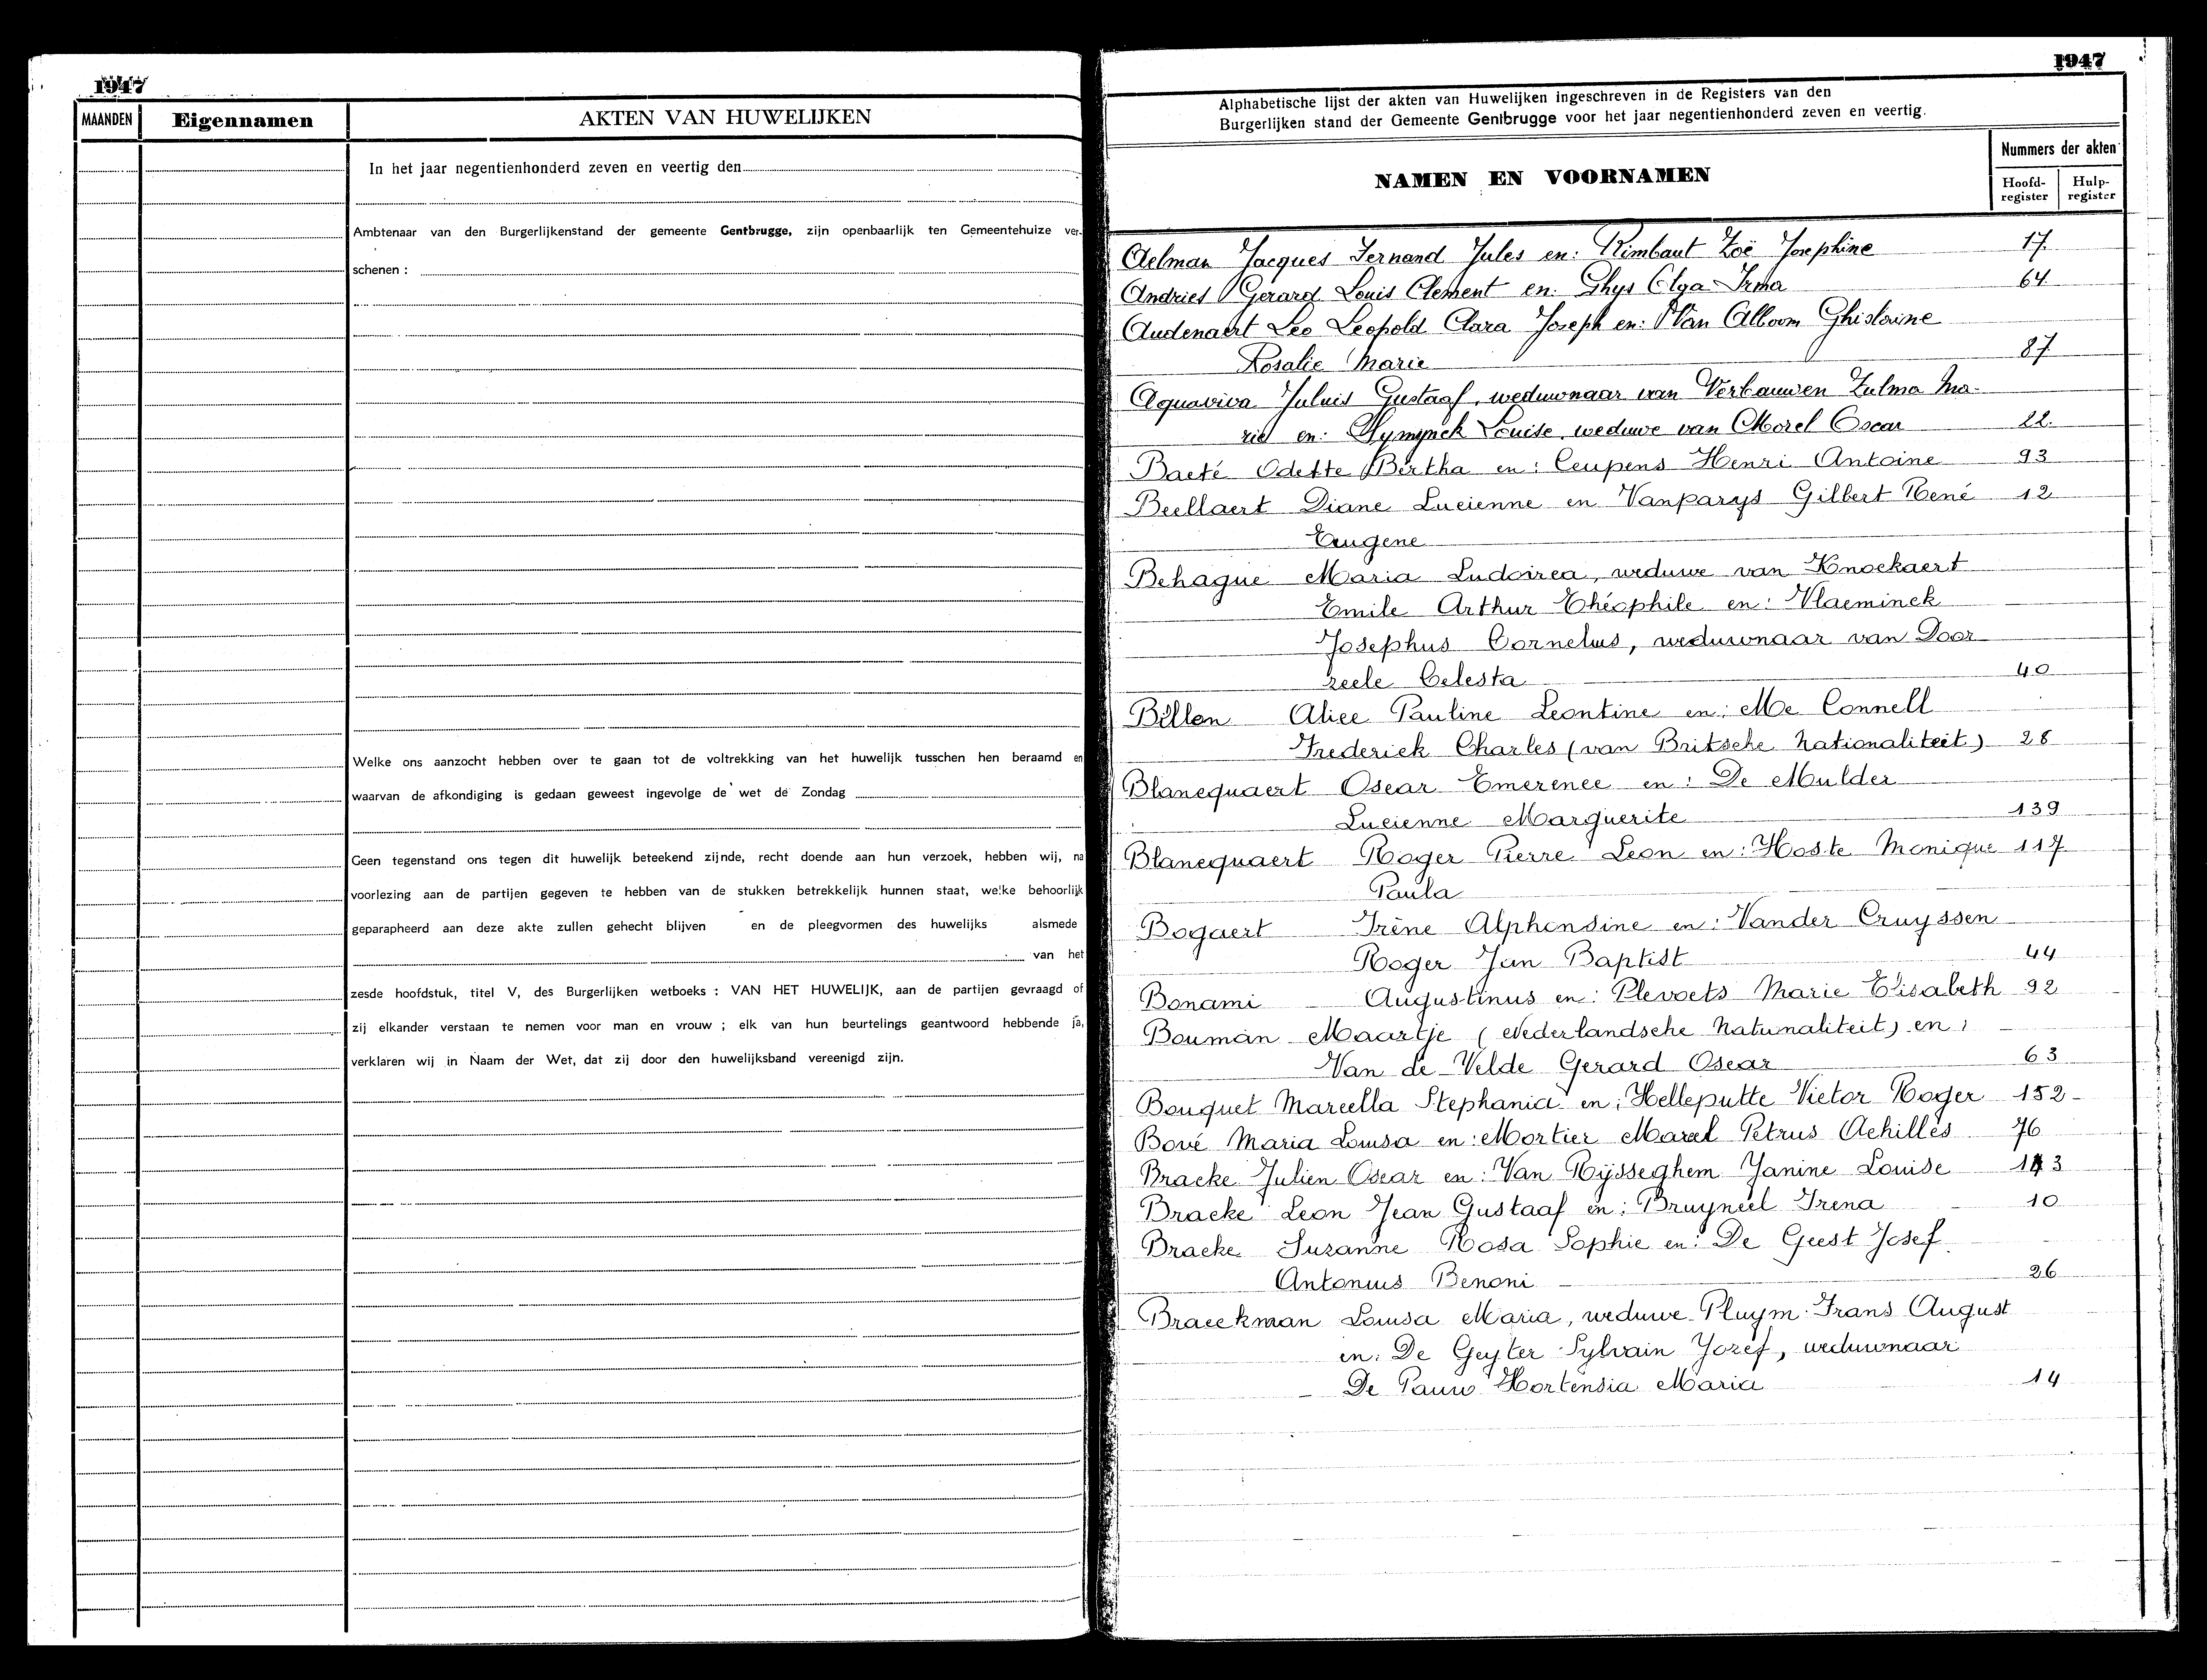 1947
MAANDEN Eigennamen AKTEN VAN HUWELIJKEN
In het jaar negentienhonderd zeven en veertig den
Ambtenaar van den Burgerlijkenstand der gemeente Gentbrugge, zijn openbaarlijk ten Gemeentehuize ver-
schenen :
Welke ons aanzocht hebben over te gaan tot de voltrekking van het huwelijk tusschen hen beraamd en
waarvan de afkondiging is gedaan geweest ingevolge de wet de Zondag
Geen tegenstand ons tegen dit huwelijk beteekend zijnde, recht doende aan hun verzoek, hebben wij, na
voorlezing aan de partijen gegeven te hebben van de stukken betrekkelijk hunnen staat, welke behoorlijk
geparapheerd aan deze akte zullen gehecht blijven en de pleegvormen des huwelijks alsmede
van het
zesde hoofdstuk, titel V, des Burgerlijken wetboeks : VAN HET HUWELIJK, aan de partijen gevraagd of
zij elkander verstaan te nemen voor man en vrouw ; elk van hun beurtelings geantwoord hebbende ja,
verklaren wij in Naam der Wet, dat zij door den huwelijksband vereenigd zijn.
1947
Alphabetische lijst der akten van Huwelijken ingeschreven in de Registers van den
Burgerlijken stand der Gemeente Gentbrugge voor het jaar negentienhonderd zeven en veertig.
NAMEN EN VOORNAMEN
Nummers der akten
Hoofd- Hulp-
register register
Aelman Jacques Fernand Jules en: Rimbaut Zoë Josephine 17.
Andries Gerard Louis Clement en: Ghys Olga Irma 64.
Audenaert Leo Leopold Clara Joseph en: Van Alboom Ghislaine
Rosalie Marie 87
Aquaviva Juluis Gustaaf, weduwnaar van Verbauwen Zulma Ma-
rie en: Louise weduwe van Morel Oscar 22.
Baeté Odette Bertha en: Ceupens Henri Antoine 93
Beellaert Diane Lucienne en Vanparys Gilbert René 12
Eugene
Behague Maria Ludovica, weduwe van Knockaert
Emile Arthur Théophile en: Vlaeminck
Josephus Cornelus, weduwnaar van Door
zeele Celesta 40
Billen Alice Pauline Leontine en: Mc Connell
Frederick Charles (van Britsche Nationaliteit) 28
Blancquaert Oscar Emerence en: De Mulder
Lucienne Marguerite 139
Blancquaert Roger Pierre Leon en: Hoste Monique 117
Paula
Bogaert Irène Alphonsine en: Vander Cruyssen
Roger Jan Baptist 44
Bonami Augustinus en: Plevoets Marie Elisabeth 92
Bouman Maartje (Nederlandsche Natunaliteit) en:
Van de Velde Gerard Oscar 63
Bouquet Marcella Stephania en: Helleputte Victor Roger 152
Bové Maria Louisa en: Mortier Marcel Petrus Achilles 76
Bracke Julien Oscar en: Van Rijsseghem Janine Louise 143
Bracke Leon Jean Gustaaf en: Bruyneel Irena 10
Bracke Suzanne Rosa Sophie en: De Geest Josef
Antonius Benoni 26
Braeckman Louisa Maria, weduwe Pluym Frans August
en: De Geyter Sylvain Jozef, weduwnaar
De Pauw Hortensia Maria 14